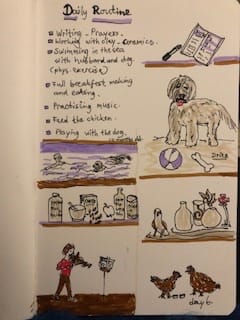 Daily Routine
Writing - Prayers.
Working with clay - ceramics.
Swimming in the sea
with husband and dog.
(phys. exercise)
Full breakfast making
and eating.
Practising music.
Feed the chicken.
Playing with the dog.
day 6.